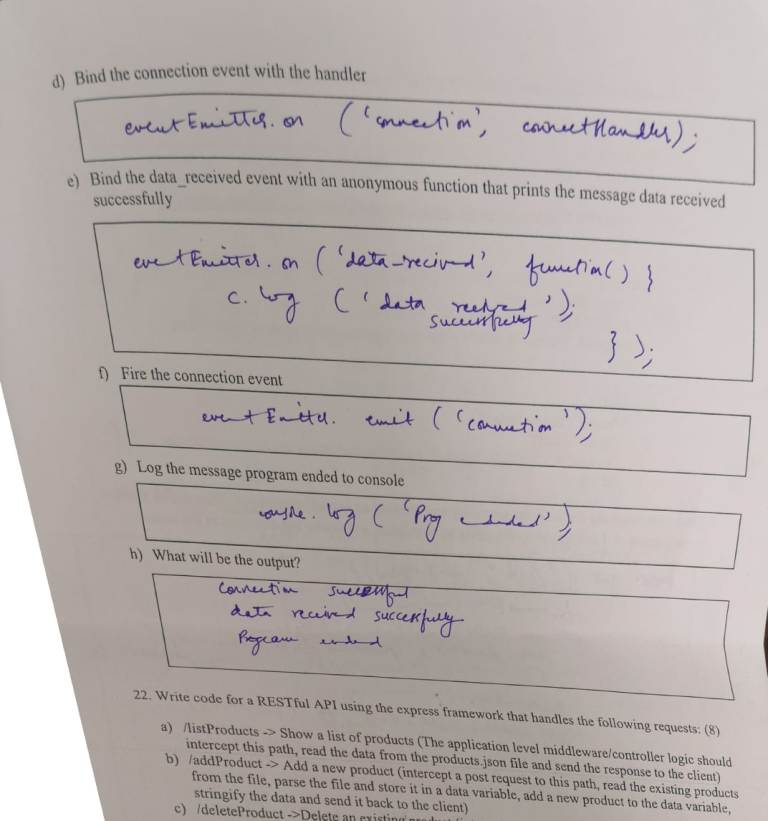 d) Bind the connection event with the handler
eventEmitter.on ('connection', connectHandler);
e) Bind the data_received event with an anonymous function that prints the message data received
successfully
eventEmitter.on ('data-recived', function() }
c. log ('data recived
successfully');
});
f) Fire the connection event
eventEmitter. emit ('connection');
g) Log the message program ended to console
console.log ('Prog ended');
h) What will be the output?
Connection successful
data received successfully
Program ended
22. Write code for a RESTful API using the express framework that handles the following requests: (8)
a) /listProducts -> Show a list of products (The application level middleware/controller logic should
intercept this path, read the data from the products.json file and send the response to the client)
b) /addProduct -> Add a new product (intercept a post request to this path, read the existing products
from the file, parse the file and store it in a data variable, add a new product to the data variable,
stringify the data and send it back to the client)
c) /deleteProduct ->Delete an existing